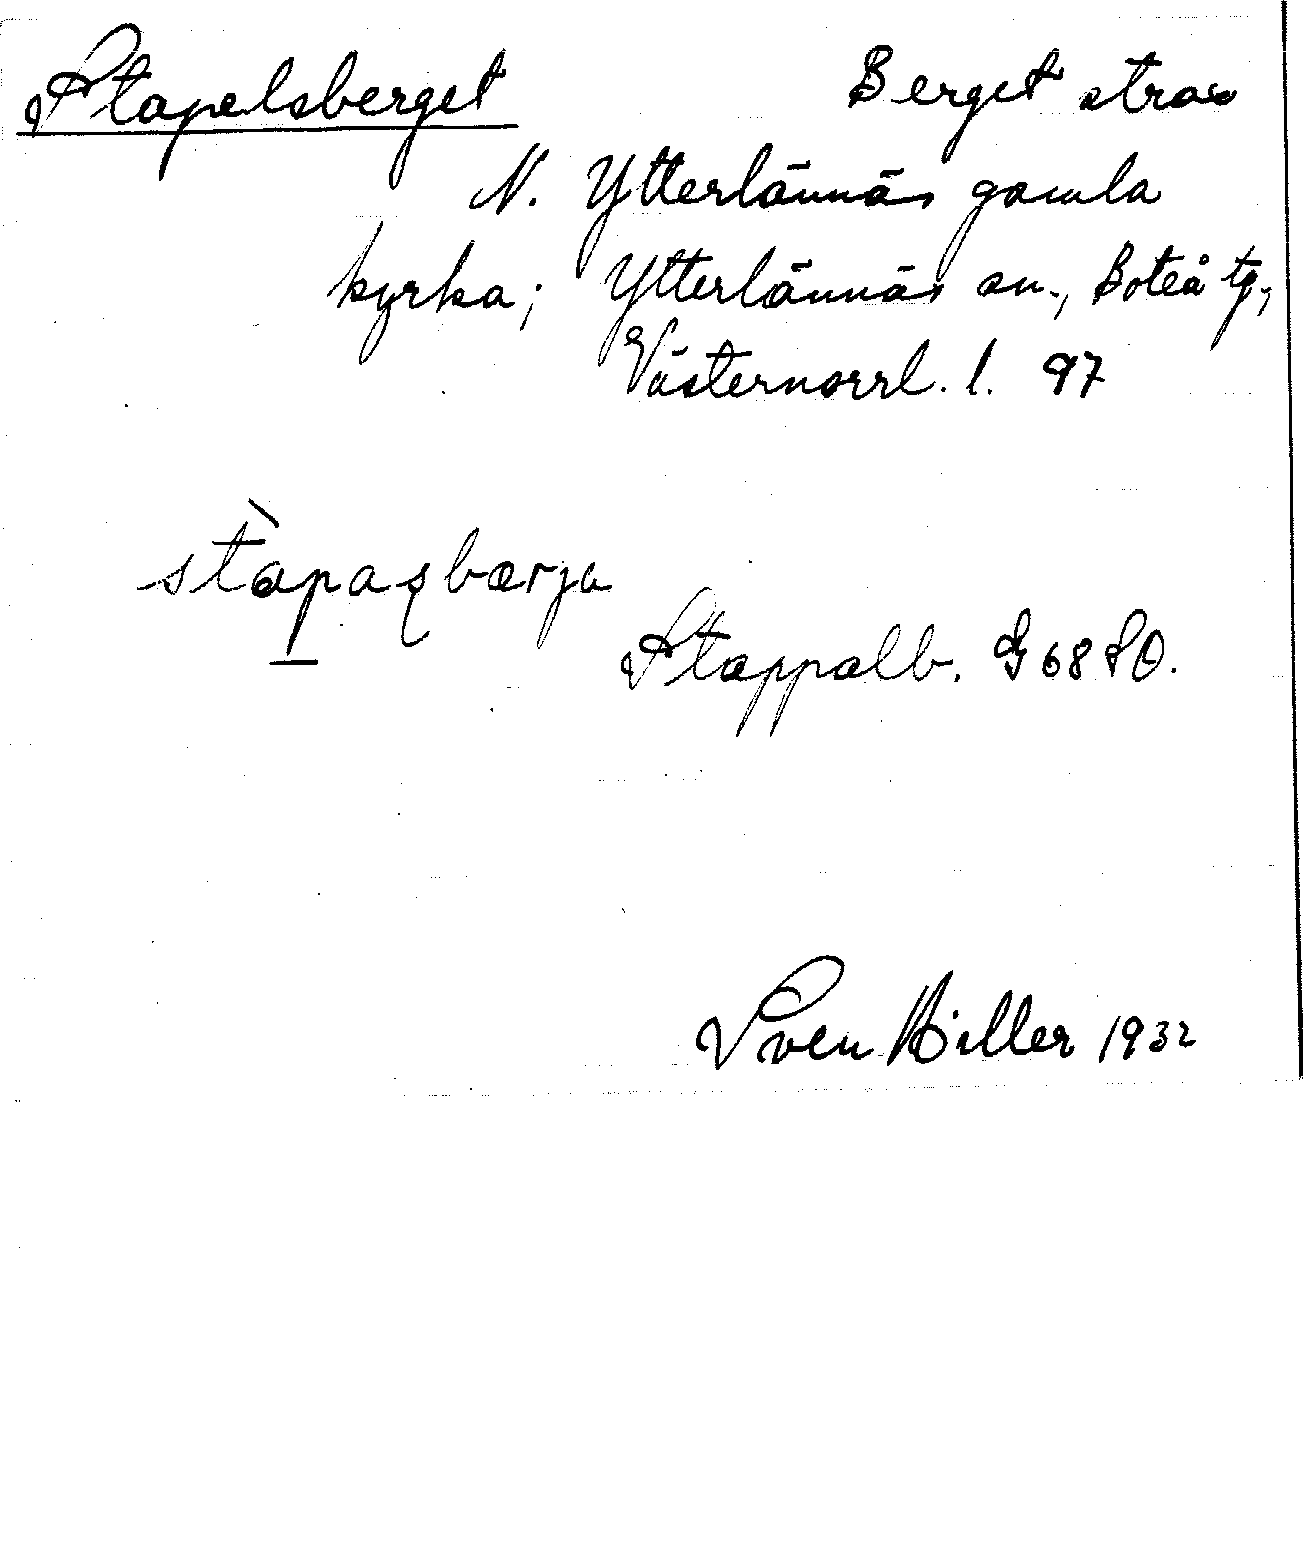 Stapelsberget Berget strax
N. Ytterlännäs gamla
kyrka; Ytterlännäs sn., Boteå tg.,
Västernorrl. l. 97
stàpaʂbærja
Stappalb. G 68 SO.
Sven Hiller 1932